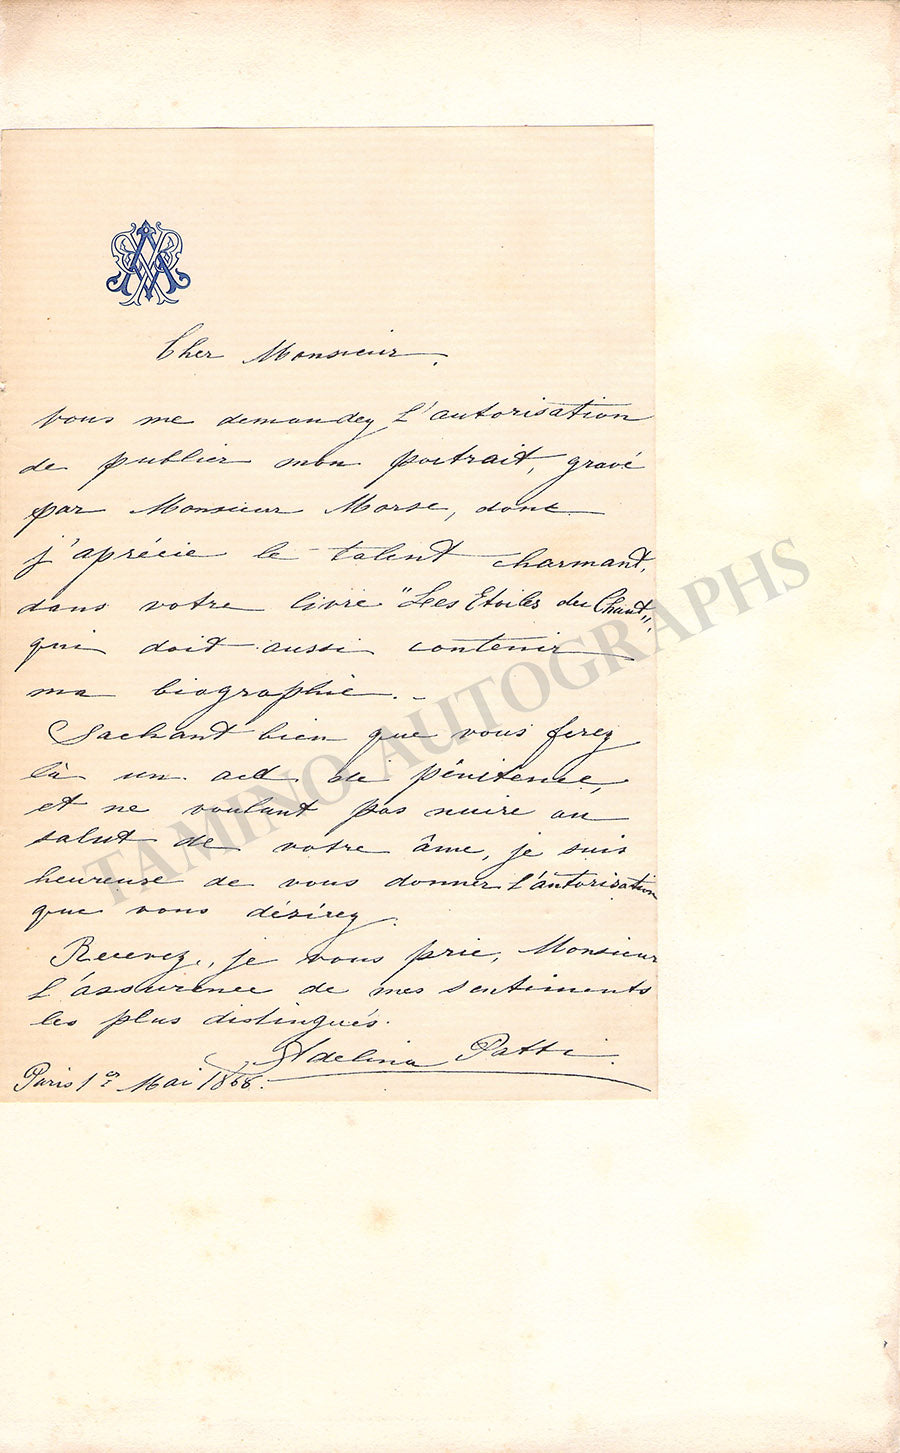 Cher Monsieur.
Vous me demandez l'autorisation
de publier mon portrait, gravé
par Monsieur Morse, dont
j'aprécie le talent charmant,
dans votre livre "Les Etoiles du Chant",
qui doit aussi contenir
ma biographie. -
Sachant bien que vous ferez
là un act de pénitence,
et ne voulant pas nuire au
salut de votre âme, je suis
heureuse de vous donner l'autorisation
que vous désirez.
Recevez, je vous prie, Monsieur
l'assurence de mes sentiments
les plus distingués.
Adelina Patti.
Paris 1er Mai 1868.
TAMINO AUTOGRAPHS